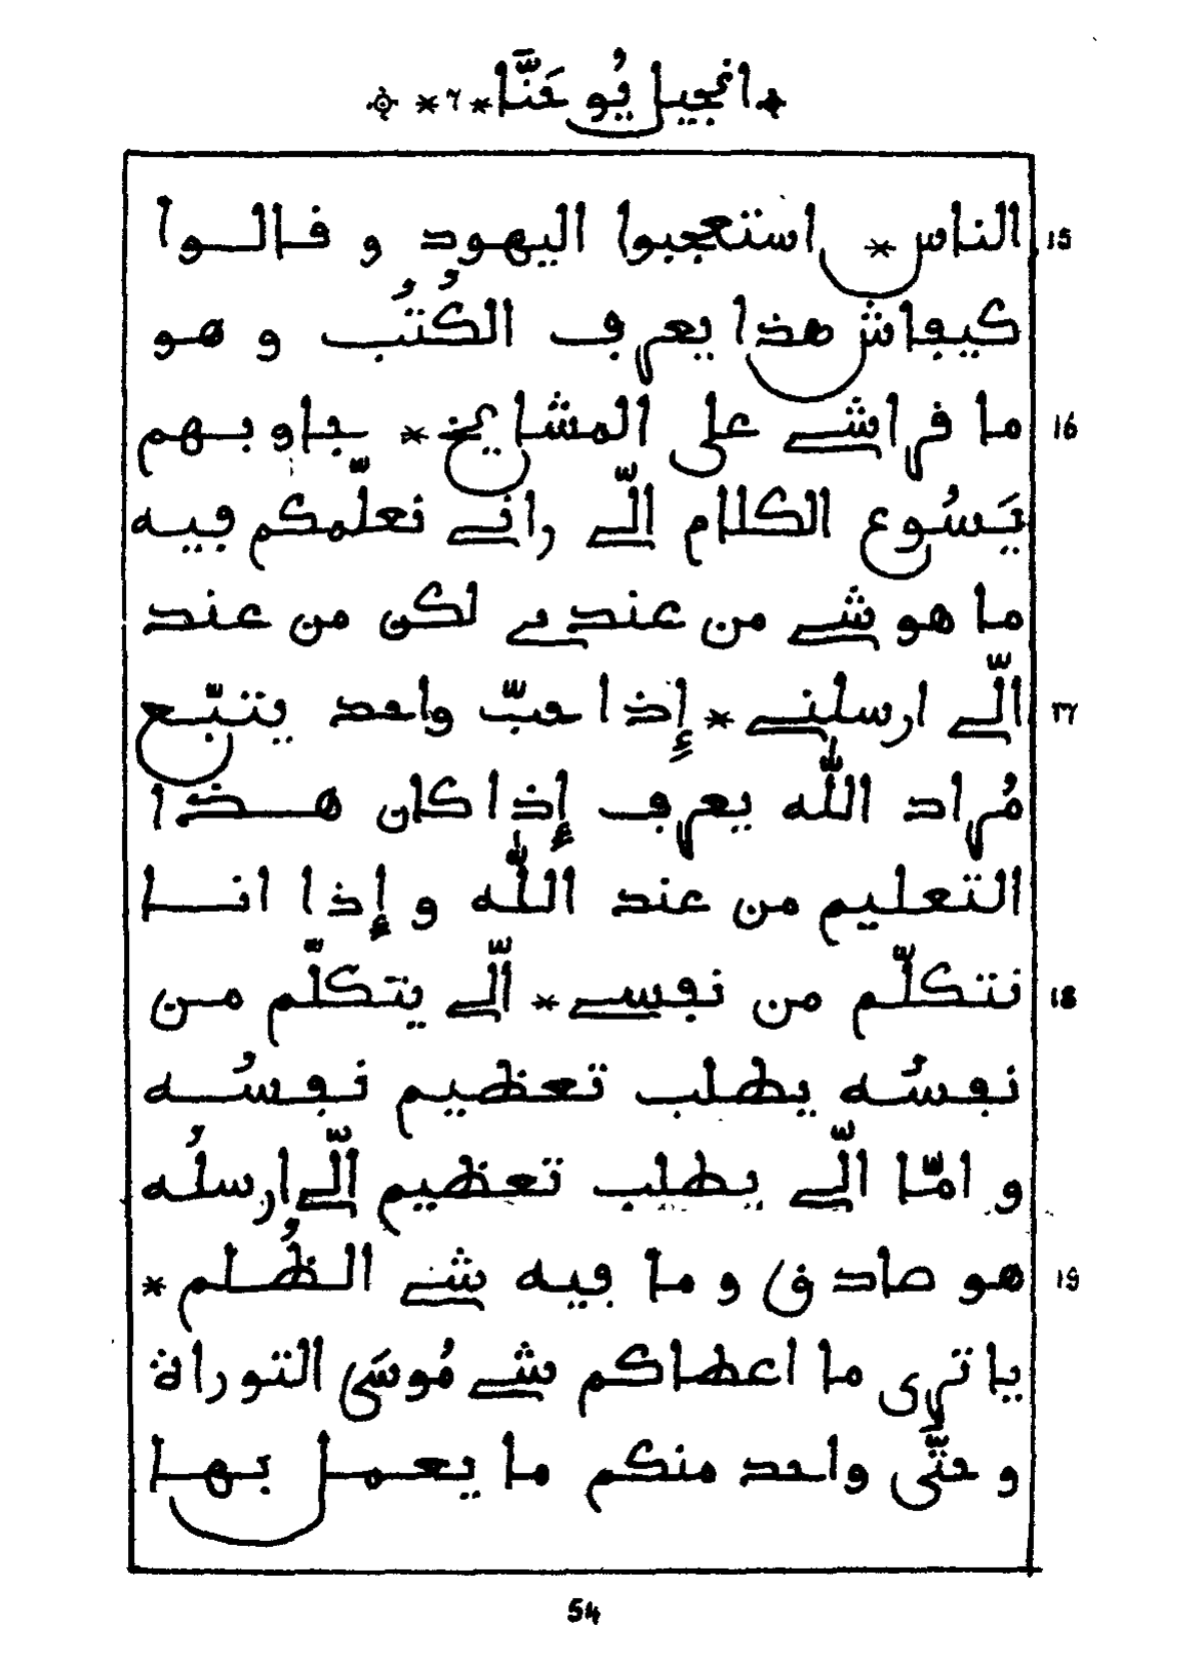 انجيل يُوحَنَّا * ٦ *
15 الناس * استعجبوا اليهود و فالوا
كيڢاش هذا يعرڢ الكُتُب و هو
16 ما فراشے على المشايخ * جاوبهم
يَسُوع الكلام الّے رانے نعلّمكم ڢيه
ما هو شے من عندے لكن من عند
١٧ الّے ارسلنے * إذا حبّ واحد يتبّع
مُراد اللّٰه يعرڢ إذا كان هذا
التعليم من عند اللّٰه و إذا انا
18 نتكلّم من نڢسے * الّے يتكلّم من
نڢسُه يطلب تعظيم نڢسُه
و امّا الّے يطلب تعظيم الّے ارسلُه
19 هو صادف و ما ڢيه شے الظُلم *
يا ترى ما اعطاكم شے مُوسَى التوراة
و حتَّى واحد منكم ما يعمل بها
54